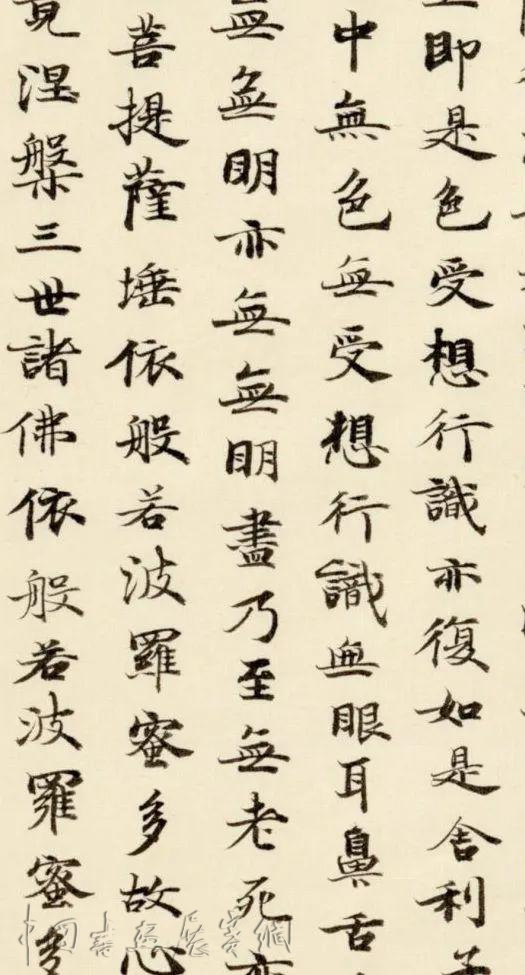 即是色受想行識亦復如是舍利子
中無色無受想行識無眼耳鼻舌
無無明亦無無明盡乃至無老死亦
菩提薩埵依般若波羅蜜多故心
竟涅槃三世諸佛依般若波羅蜜多
中国书画展赛網